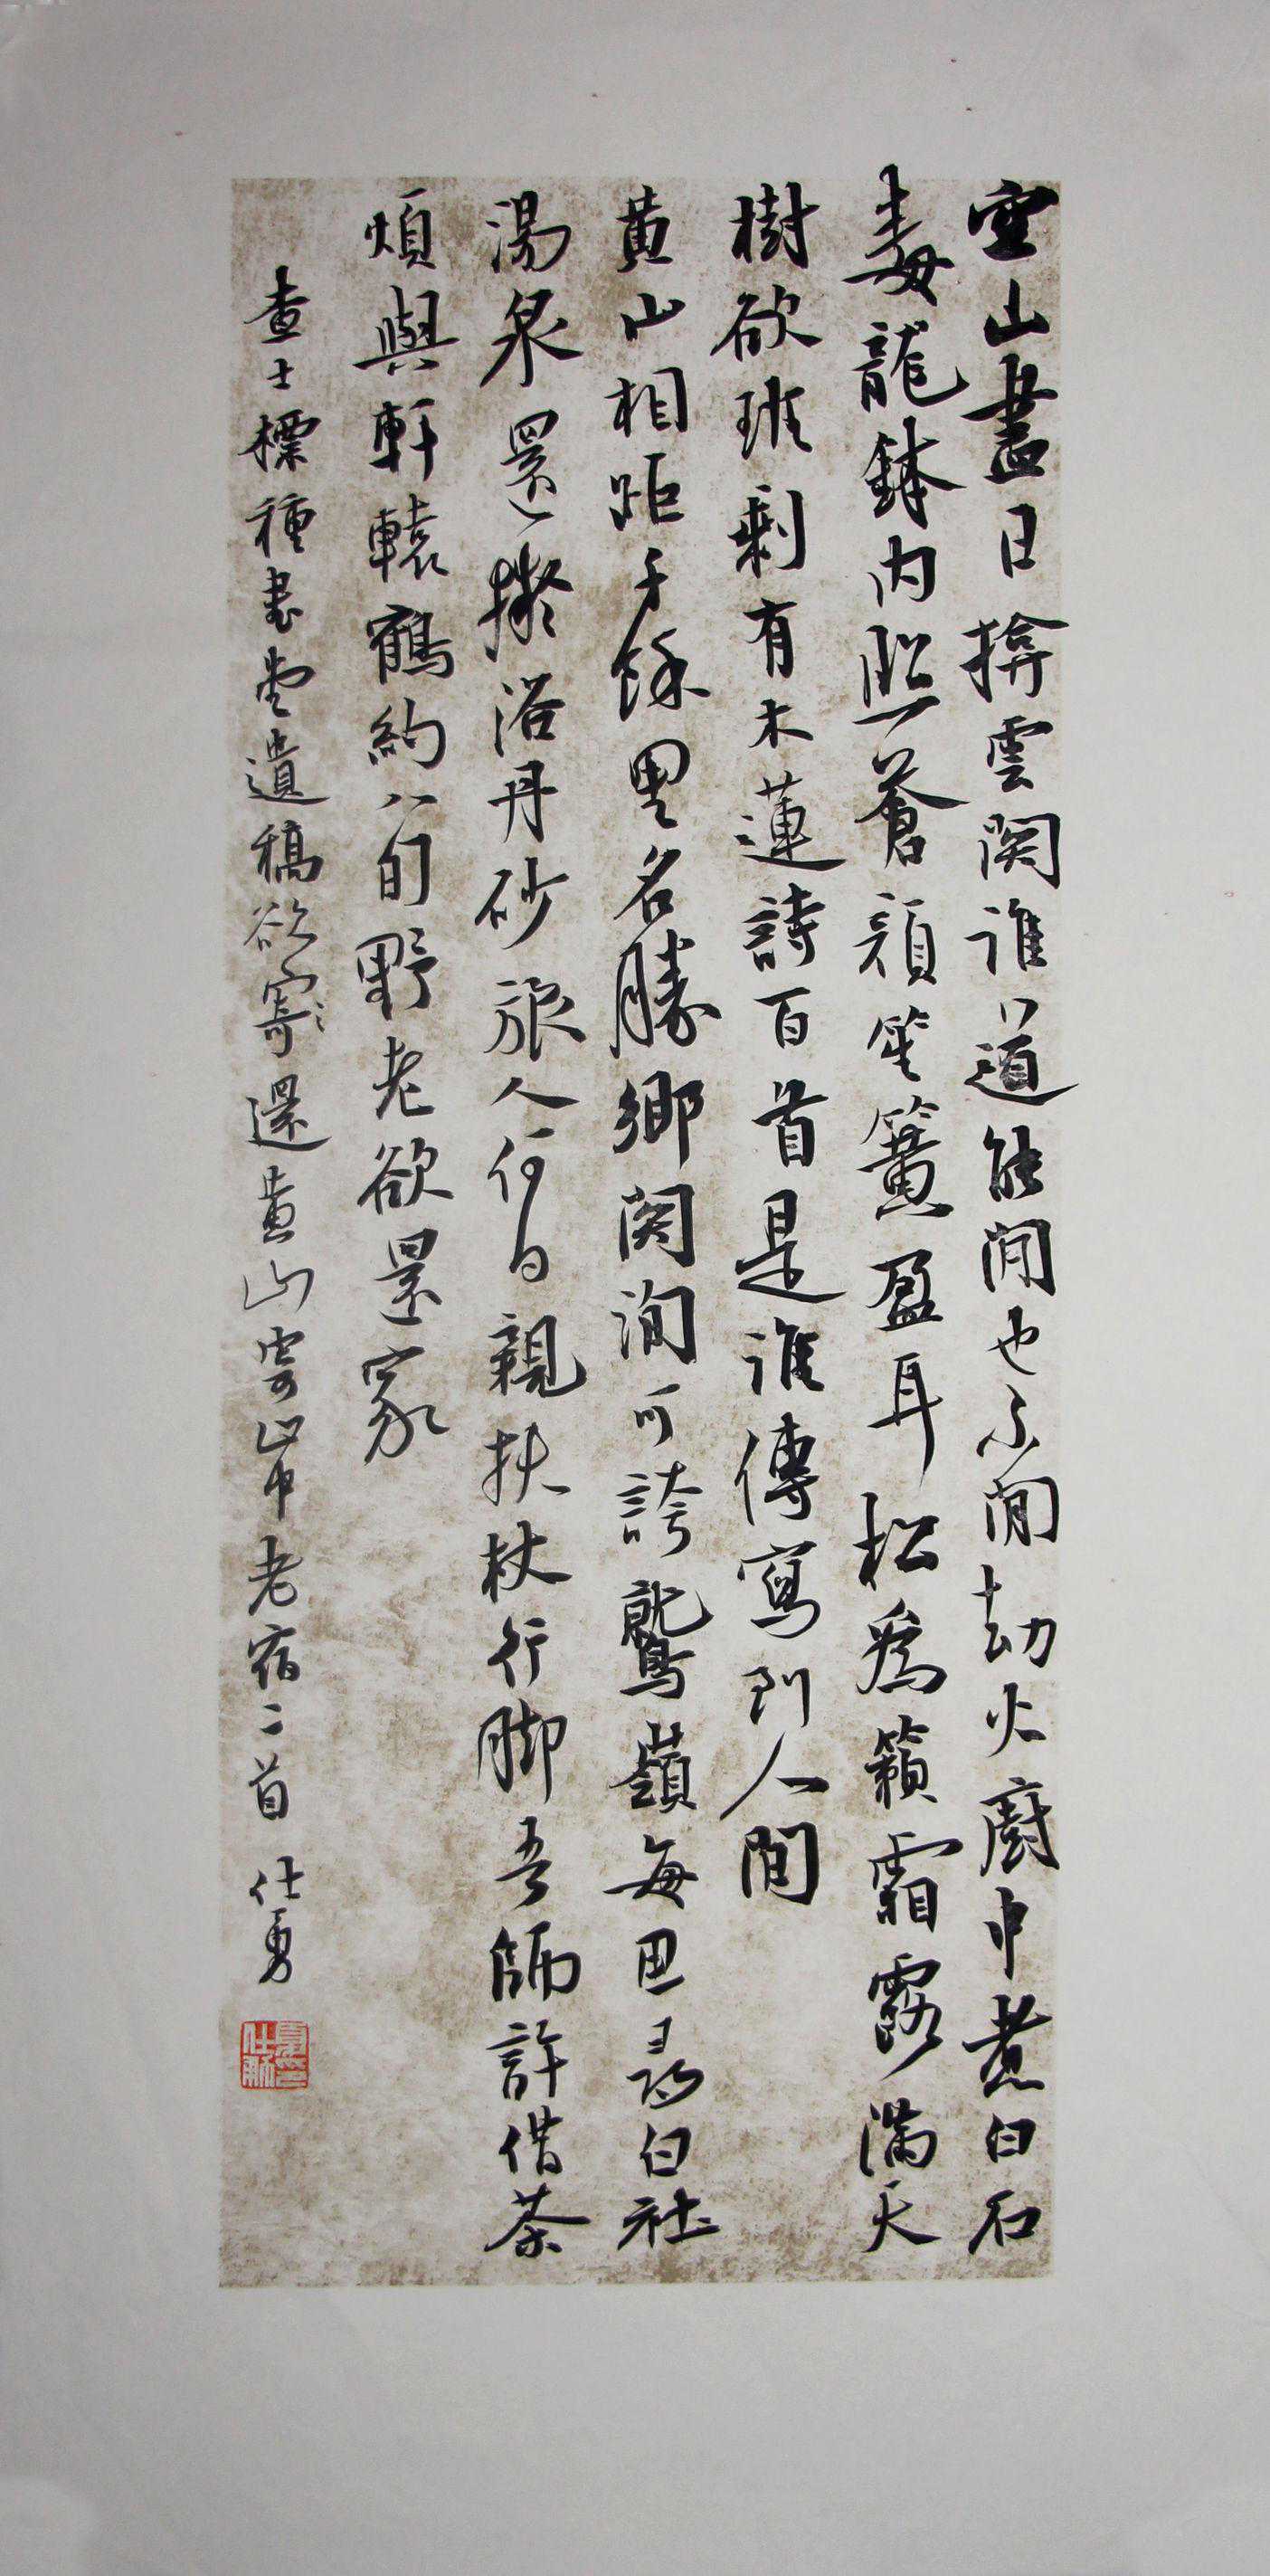 空山盡日揜雲関誰道能閒也不閒劫火廚中煮白石
毒龍鉢内照蒼顔笙簧盈耳松爲籟霜露滿天
樹欲班剩有木蓮詩百首是誰傳寫到人間
黄山相距千餘里名勝鄉関洵可誇鷲嶺每思尋白社
湯泉還擬浴丹砂旅人何日親扶杖行脚吾師許借茶
煩與軒轅鶴約八旬野老欲還家
查士標種書堂遺稿欲寄還黄山寄山中老宿二首 仕勇